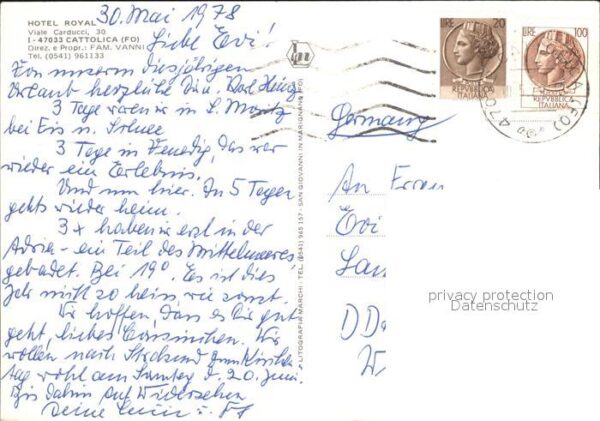 30. Mai 1978
HOTEL ROYAL
Viale Carducci, 30
I - 47033 CATTOLICA (FO)
Direz. e Propr.: FAM. VANNI
Tel. (0541) 961133
Liebe Evi!
Von unserem diesjährigen
Urlaub herzliche Karl Heinz
3 Tage waren wir in S. Moritz
bei Eis u. Schnee
3 Tage in Venedig, das war
wieder ein Erlebnis.
Und nun hier. In 5 Tagen
gehts wieder heim.
3 x haben wir erst in der
Adria - ein Teil des Mittelmeeres,
gebadet. Bei 19°. Es ist dies
Jahr nicht so heiss, wie sonst.
Wir hoffen, dass es Dir gut
geht, liebes Cousinchen. Wir
wollen nach Stralsund
tag wohl am d. 20. Juni.
Bis dahin auf Wiedersehen
Deine
LITOGRAFIA MARCHI - TEL. (0541) 965 157 - SAN GIOVANNI IN MARIGNANO (FO)
LIRE 20
REPVBBLICA
ITALIANA
LIRE 100
REPVBBLICA
ITALIANA
Germany
An Frau
Evi
DDR
privacy protection
Datenschutz